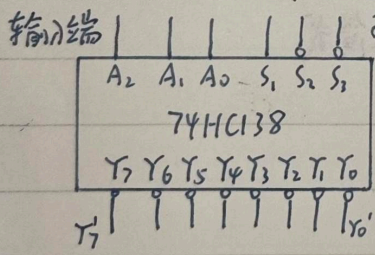 输入端
A2 A1 A0 S1 S2 S3
74HC138
Y7 Y6 Y5 Y4 Y3 Y2 Y1 Y0
Y7' Y0'